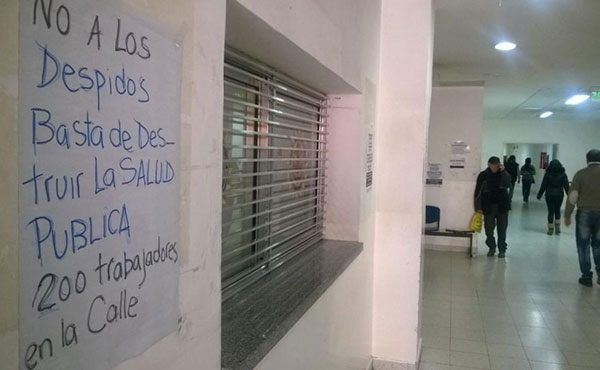 NO A LOS
Despidos
Basta de Des-
truir La SALUD
PUBLICA
200 trabajadores
en la Calle